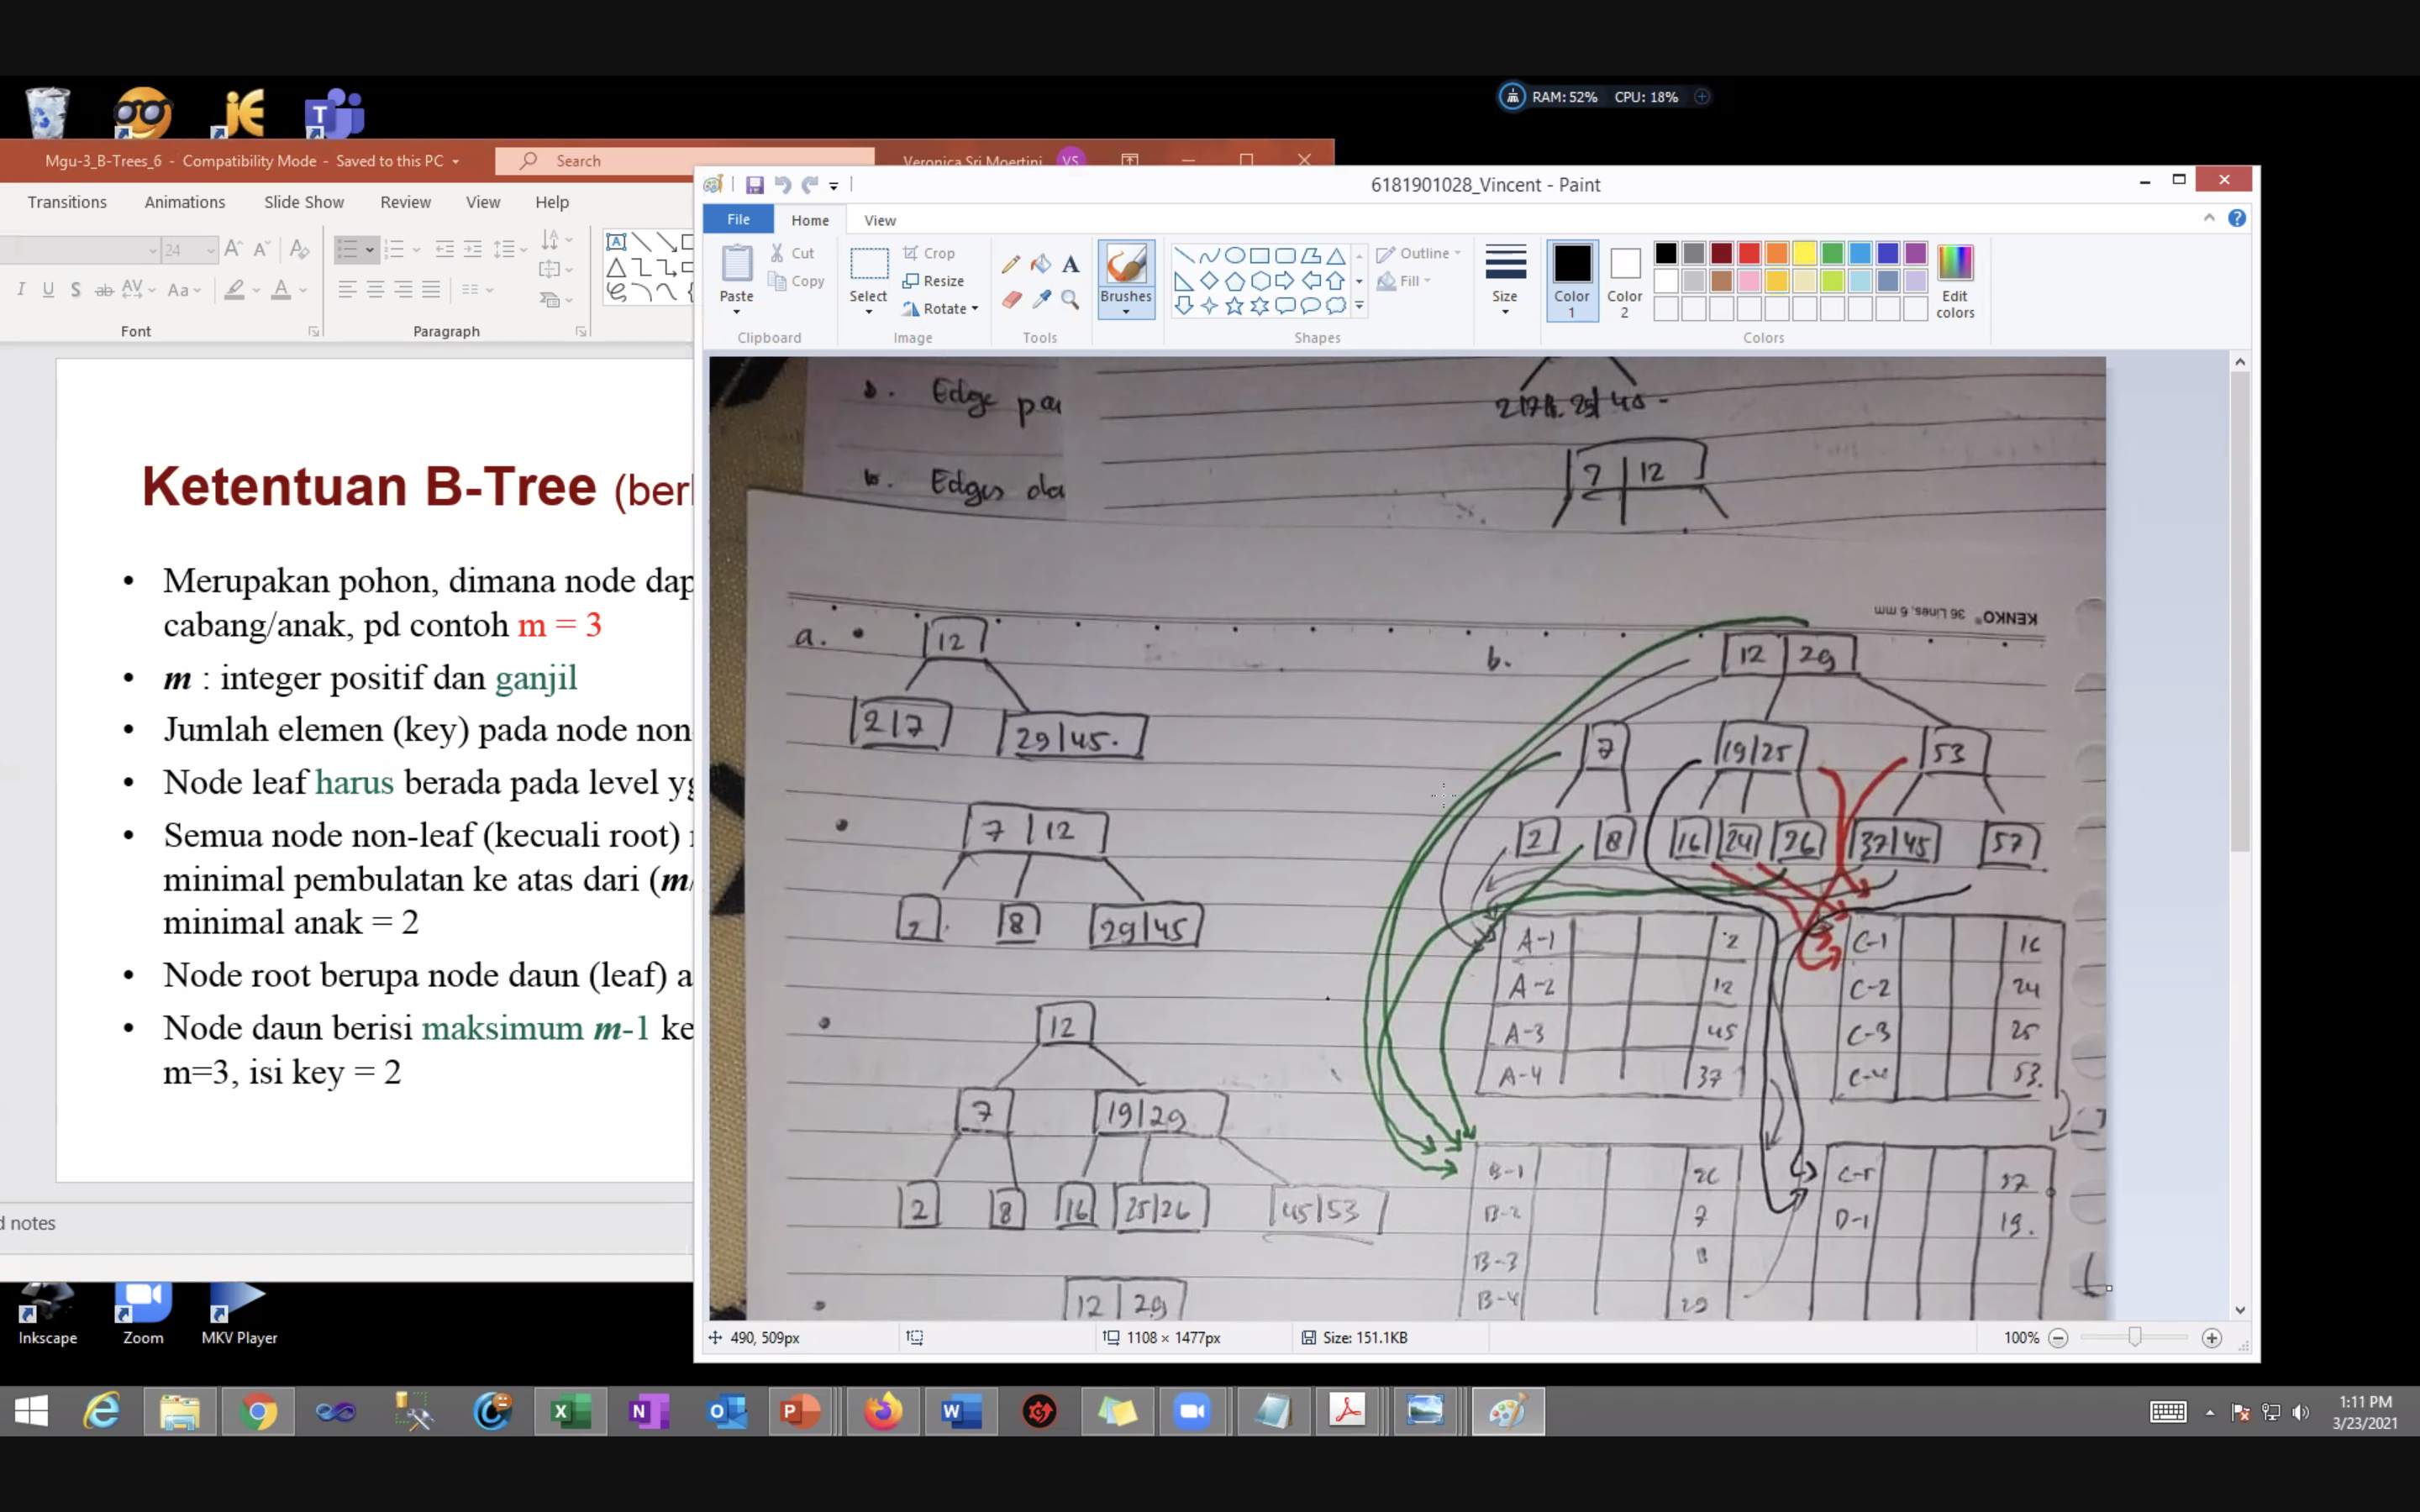 RAM: 52% CPU: 18%
Mgu-3_B-Trees_6 - Compatibility Mode - Saved to this PC
Search
Veronica Sri Moertini
VS
Transitions Animations Slide Show Review View Help
24
Font
Paragraph
Ketentuan B-Tree (berl
• Merupakan pohon, dimana node dap
cabang/anak, pd contoh m = 3
• m : integer positif dan ganjil
• Jumlah elemen (key) pada node non
• Node leaf harus berada pada level yg
• Semua node non-leaf (kecuali root)
minimal pembulatan ke atas dari (m/
minimal anak = 2
• Node root berupa node daun (leaf) a
• Node daun berisi maksimum m-1 ke
m=3, isi key = 2
d notes
Inkscape
Zoom
MKV Player
6181901028_Vincent - Paint
File Home View
Paste
Cut
Copy
Clipboard
Select
Crop
Resize
Rotate
Image
Tools
Brushes
Shapes
Outline
Fill
Size
Color 1
Color 2
Colors
Edit colors
Edge pa
b. Edges da
7 | 12
KENKO® 36 Lines, 6 mm
a.
12
2|7 29|45.
7 | 12
2 8 29|45
12
7 19|29
2 8 16 25|26 45|53
12 | 29
b.
12 | 29
7 19|25 53
2 8 16 24 26 37|45 57
A-1 2
A-2 12
A-3 45
A-4 37
B-1 26
B-2 7
B-3 8
B-4 29
C-1 16
C-2 24
C-3 25
C-4 53.
D-1 19.
490, 509px
1108 × 1477px
Size: 151.1KB
100%
1:11 PM
3/23/2021